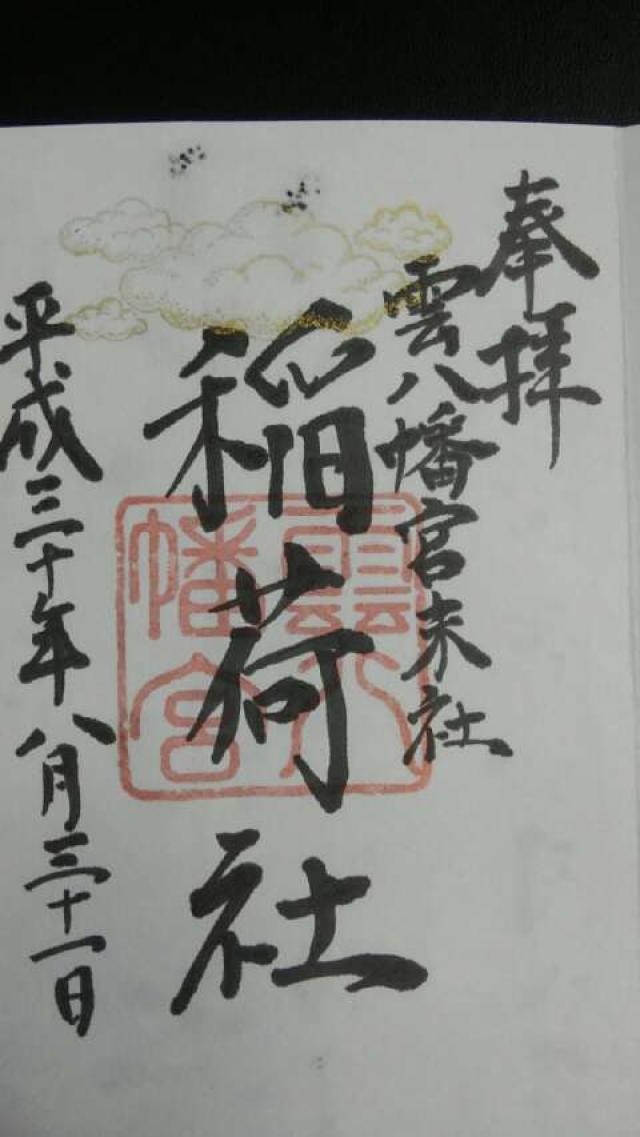 奉拝
雲八幡宮末社
稲荷社
雲八幡宮
平成三十年八月三十一日